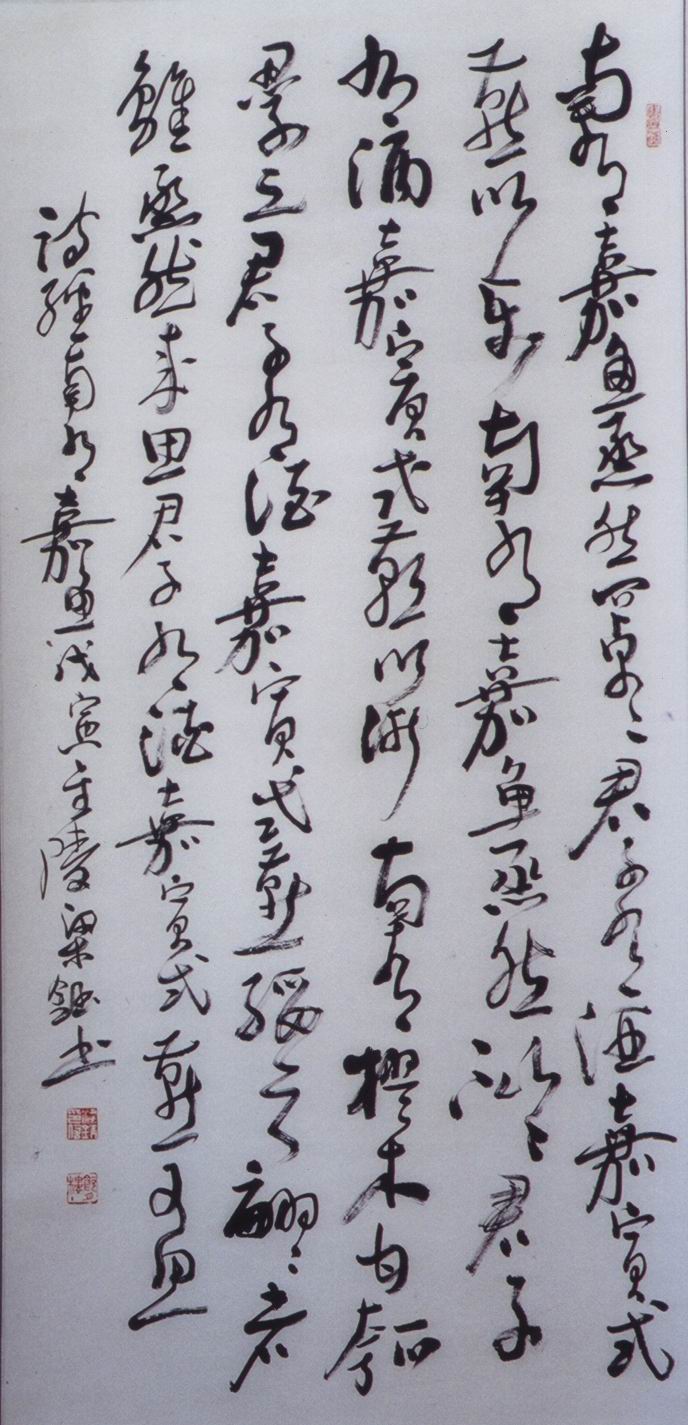 南有嘉魚烝然罩々君子有酒嘉賓式
燕以樂南有嘉魚烝然汕々君子
有酒嘉賓式燕以衎南有樛木甘瓠
纍之君子有酒嘉賓式燕綏之翩々者
鵻烝然來思君子有酒嘉賓式燕又思
詩經南有嘉魚戊寅陵梁書